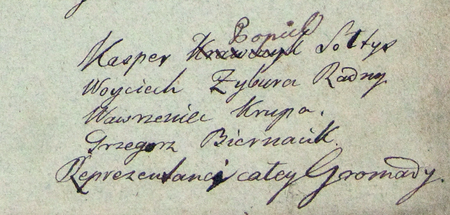 Popiel
Kasper Krawczyk Sołtys
Woyciech Zybura Radny
Wawrzeniec Krupa.
Grzegorz Biernacik.
Reprezentanci całey Gromady.